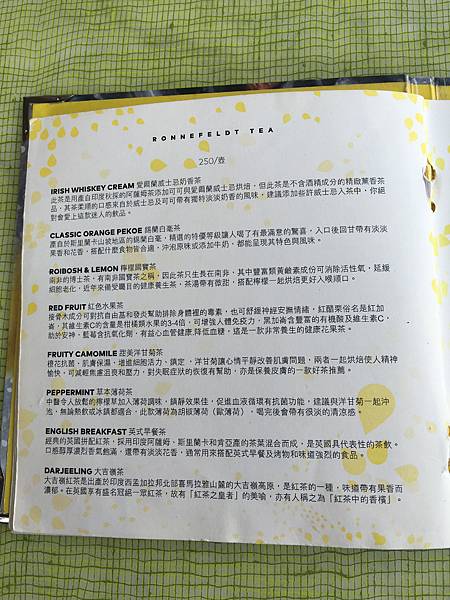 RONNEFELDT TEA
250/壺
IRISH WHISKEY CREAM 愛爾蘭威士忌奶香茶
此茶是用產自印度秋採的阿薩姆茶添加可可與愛爾蘭威士忌烘焙，但此茶是不含酒精成分的精緻薰香茶
品，其茶柔順的口感來自於威士忌及可可帶有獨特淡淡奶香的風味，建議添加些許威士忌入茶中，你絕
對會愛上這款迷人的飲品。
CLASSIC ORANGE PEKOE 錫蘭白毫茶
產自於斯里蘭卡山坡地區的錫蘭白毫，精選的特優等級讓人喝了有最滿意的驚喜，入口後回甘帶有淡淡
果香和花香，搭配什麼食物皆合適，沖泡原味或添加牛奶，都能呈現其特色與風味。
ROIBOSH & LEMON 檸檬國寶茶
南非的博士茶，有南非國寶茶之稱，因此茶只生長在南非，其中豐富類黃鹼素成份可消除活性氧，延緩
細胞老化，近年來備受矚目的健康養生茶，茶湯帶有微甜，搭配檸檬一起烘焙更好入喉順口。
RED FRUIT 紅色水果茶
接骨木成分可對抗自由基和發炎幫助排除身體裡的毒素，也可舒緩神經安撫情緒，紅醋栗俗名是紅加
崙，其維生素C的含量是柑橘類水果的3-4倍，可增強人體免疫力，黑加崙含豐富的有機酸及維生素C，
助於安神，藍莓含抗氧化劑，有益心血管健康,降低血糖，這是一款非常養生的健康花果茶。
FRUITY CAMOMILE 甜美洋甘菊茶
橙花抗菌、肌膚保濕、增進細胞活力、鎮定，洋甘菊讓心情平靜改善肌膚問題，兩者一起烘焙使人精神
愉快，可減輕焦慮沮喪和壓力，對失眠症狀的恢復有幫助，亦是保養皮膚的一款好茶推薦。
PEPPERMINT 草本薄荷茶
中醫令人放鬆的檸檬草加入薄荷調味，鎮靜效果佳，促進血液循環有抗菌功能，建議與洋甘菊一起沖
泡，無論熱飲或冰鎮都適合，此款薄荷為胡椒薄荷（歐薄荷），喝完後會帶有很淡的清涼感。
ENGLISH BREAKFAST 英式早餐茶
經典的英國拼配紅茶，採用印度阿薩姆、斯里蘭卡和肯亞產的茶葉混合而成，是英國具代表性的茶飲。
口感醇厚濃烈香氣飽滿，還帶有淡淡花香，通常用來搭配英式早餐及烤物和味道強烈的食品。
DARJEELING 大吉嶺茶
大吉嶺紅茶是出產於印度西孟加拉邦北部喜馬拉雅山麓的大吉嶺高原，是紅茶的一種，味道帶有果香而
濃郁。在英國享有盛名冠絕一眾紅茶，故有「紅茶之皇者」的美喻，亦有人稱之為「紅茶中的香檳」。